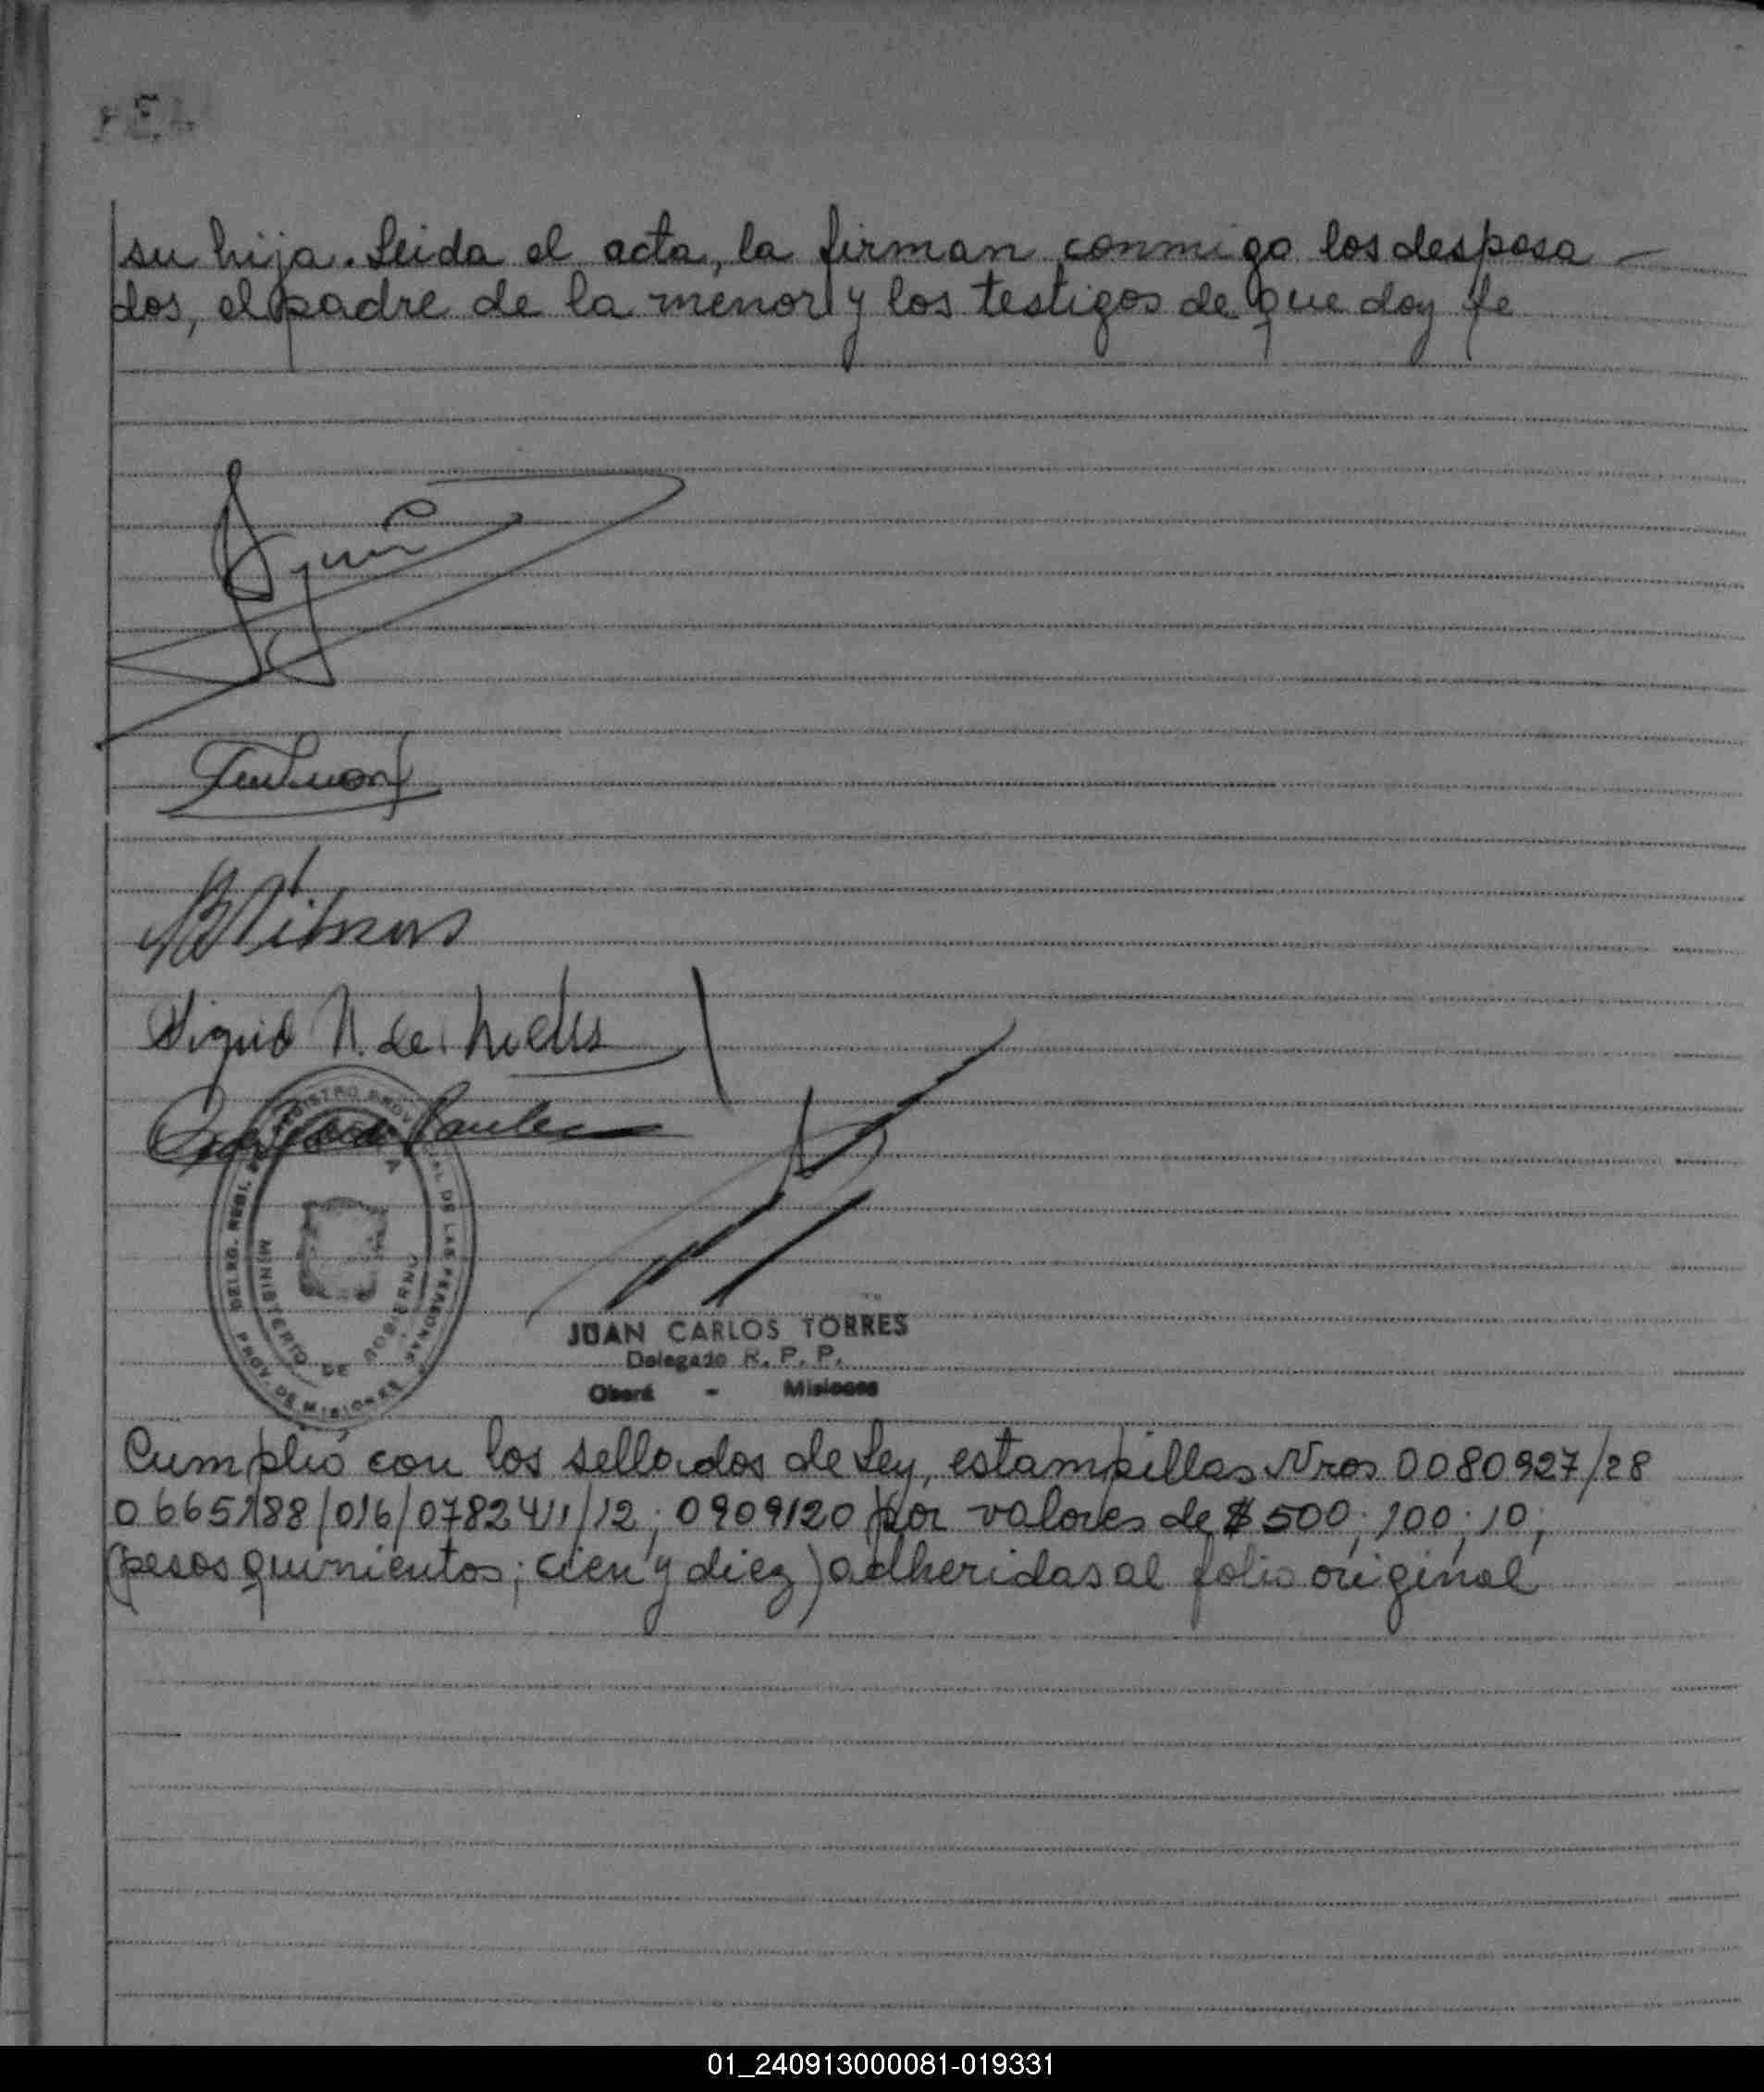 su hija. Leida el acta, la firman conmigo los desposa -
dos, el padre de la menor y los testigos de que doy fe
Sigrid N. de
REGISTRO PROVINCIAL DE LAS PERSONAS
MINISTERIO DE GOBIERNO
PROV. DE MISIONES
JUAN CARLOS TORRES
Delegado R. P. P.
Oberá - Misiones
Cumplió con los sellados de Ley, estampillas Nros 0080927/28
0665188/016/0782411/12; 0909120 por valores de $ 500; 100; 10;
(pesos quinientos; cien y diez) adheridas al folio original
01_240913000081-019331